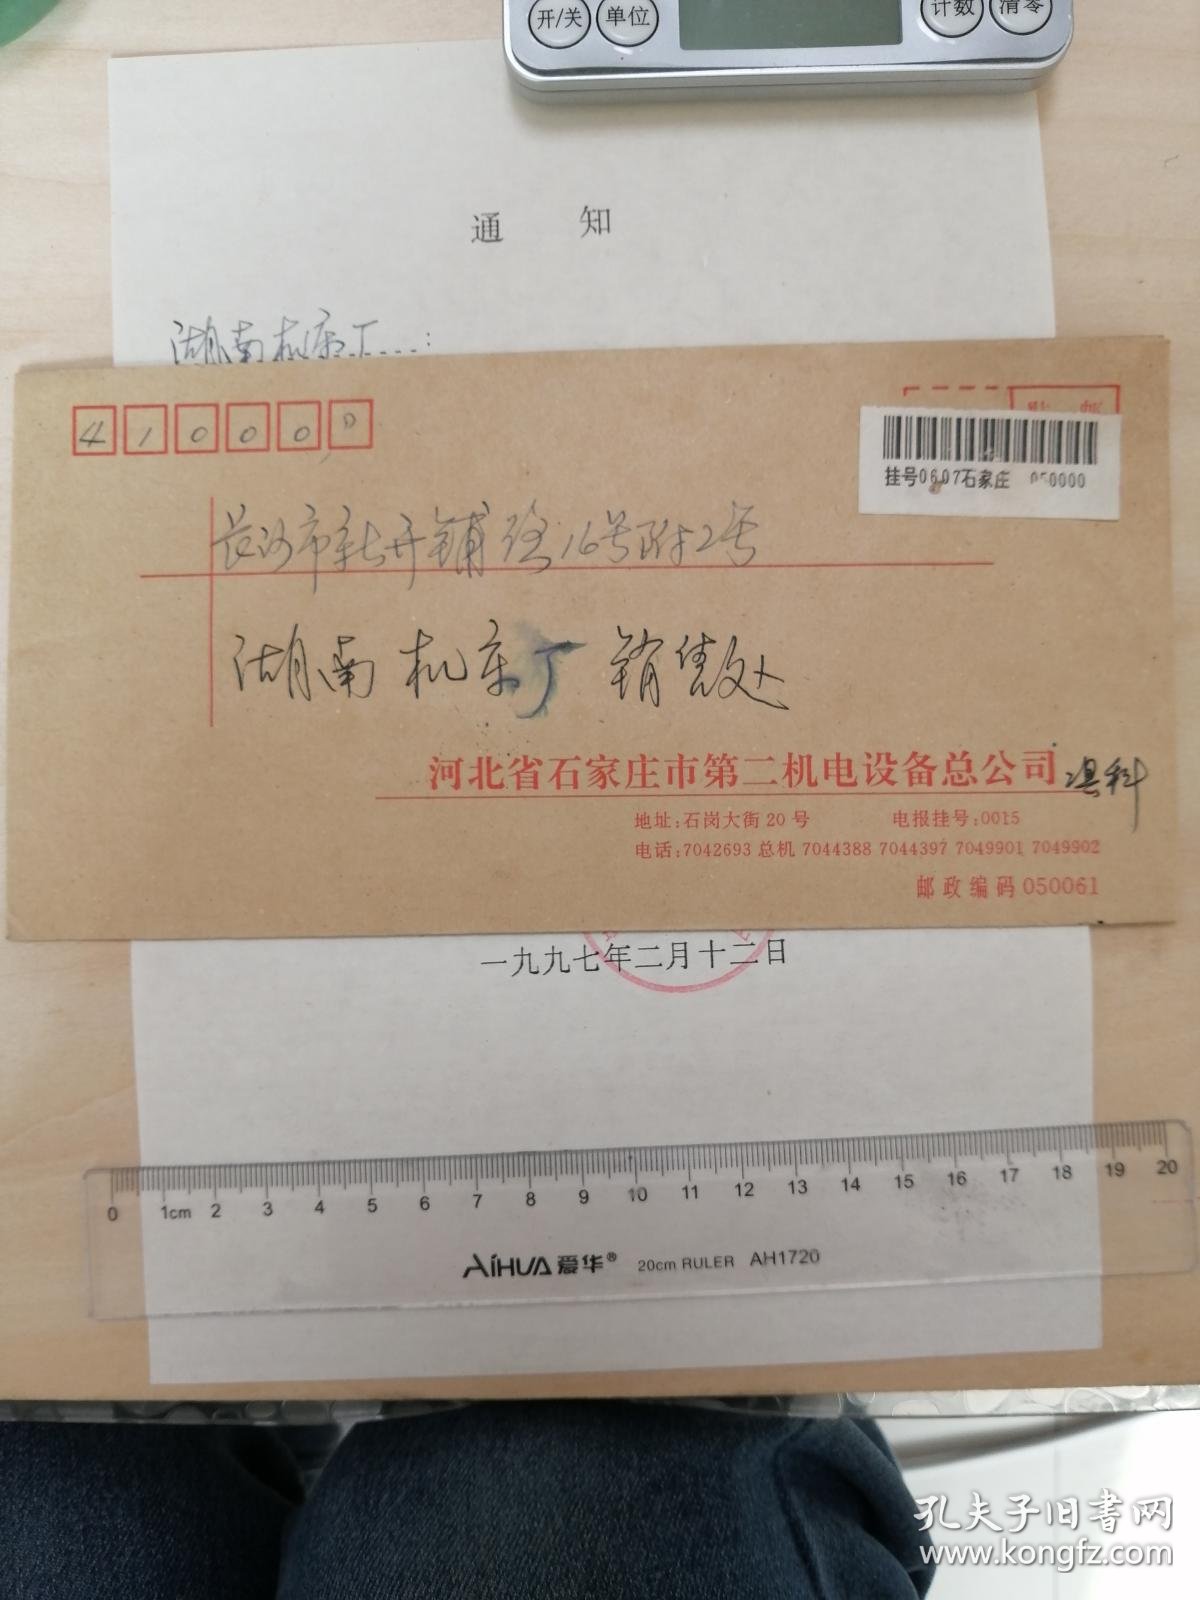 开/关 单位 计数 清零
通 知
湖南机床厂:
410000
贴 邮
挂号0607石家庄 050000
长沙市新开铺路16号附2号
湖南机床厂 销售处
河北省石家庄市第二机电设备总公司
地址:石岗大街20号 电报挂号:0015
电话:7042693 总机 7044388 7044397 7049901 7049902
邮政编码050061
一九九七年二月十二日
0 1cm 2 3 4 5 6 7 8 9 10 11 12 13 14 15 16 17 18 19 20
AIHUA 爱华® 20cm RULER AH1720
孔夫子旧书网
www.kongfz.com